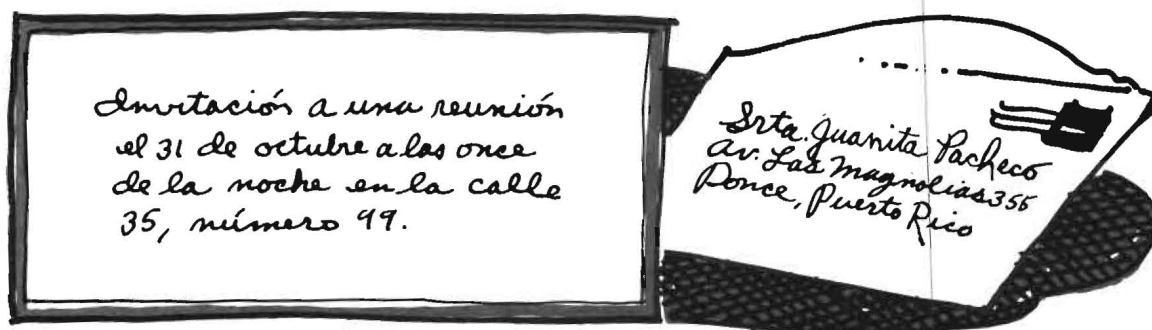 Invitación a una reunión
el 31 de octubre a las once
de la noche en la calle
35, número 99.
Srta. Juanita Pacheco
Av. Las Magnolias 355
Ponce, Puerto Rico